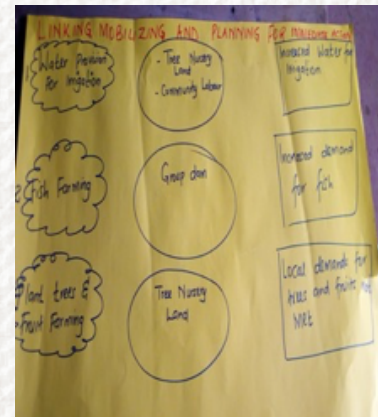 LINKING MOBILIZING AND PLANNING FOR IMMEDIATE ACTION
Water Provision
for Irrigation
- Tree Nursery
Land
- Community Labour
Increased Water for
Irrigation
Fish Farming
Group dam
Increased demand
for fish
Land trees &
Fruit Farming
Tree Nursery
Land
Local demands for
trees and fruits not
Met